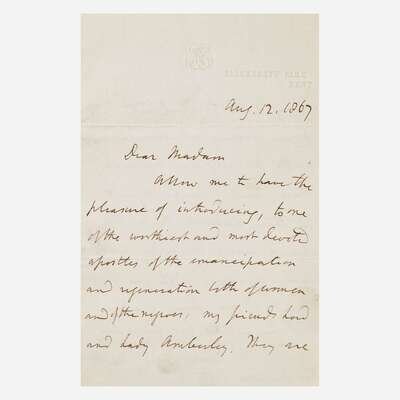 BLACKHEATH PARK
KENT
Aug. 12. 1867
Dear Madam
Allow me to have the
pleasure of introducing, to one
of the worthiest and most devoted
apostles of the emancipation
and regeneration both of women
and of the negroes, my friends Lord
and Lady Amberley. They are